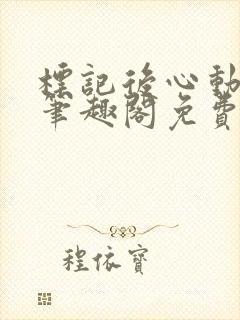 標記後心動
筆趣閣免費
程依寶